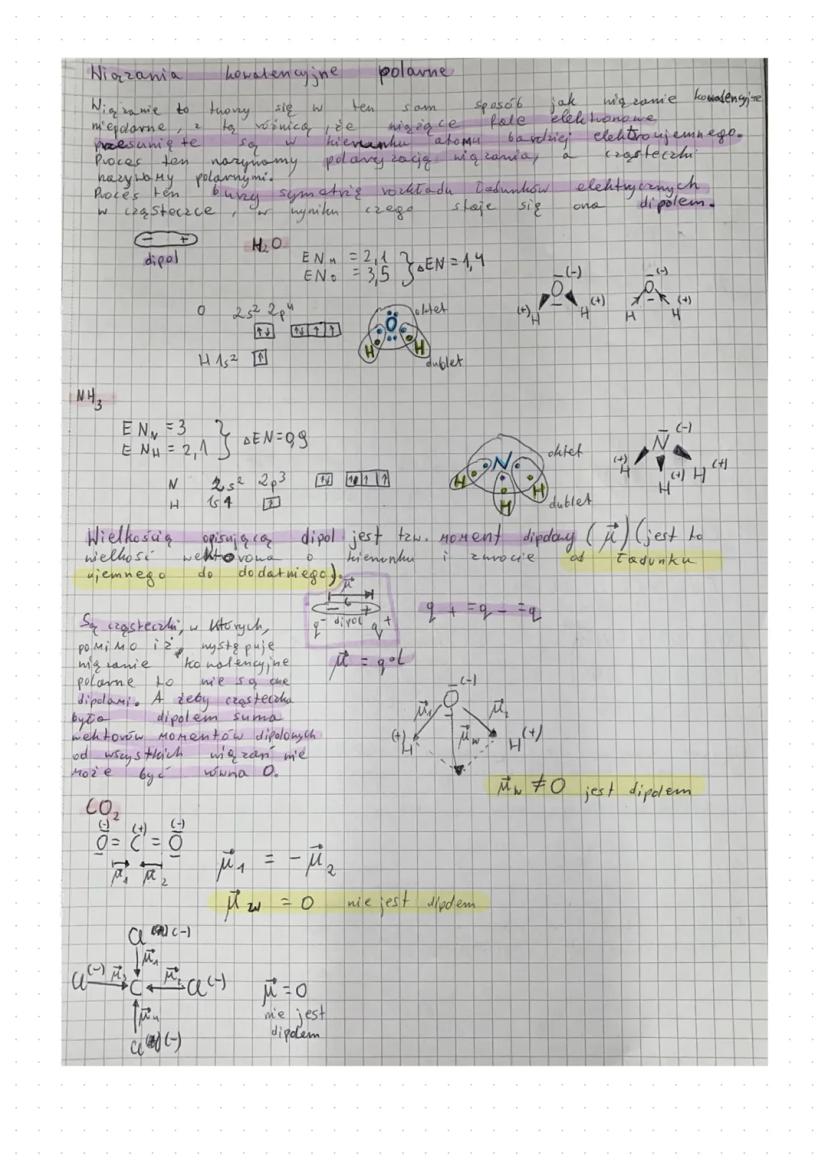 Wiązania kowalencyjne polarne
Wiązanie to tworzy się w ten sam sposób jak wiązanie kowalencyjne
niepolarne, z tą różnicą, że wiążące Pole elektronowe
przesunięte są w kierunku atomu bardziej elektroujemnego.
Proces ten nazywamy polaryzacją wiązania, a cząsteczki
nazywamy polarnymi.
Proces ten burzy symetrię rozkładu ładunków elektrycznych
w cząsteczce, w wyniku czego staje się ona dipolem.
- +
dipol
H₂O
EN H = 2,1
EN O = 3,5 } ΔEN = 1,4
O 2s² 2p⁴
↑↓ ↑↓ ↑ ↑
H 1s² ↑
oktet
O
H H
dublet
(-)
O
(+) H H (+)
(-)
O
H H (+)
NH₃
EN N = 3
EN H = 2,1 } ΔEN = 0,9
N 2s² 2p³ ↑↓ ↑ ↑ ↑
H 1s1 ↑
oktet
N
H H H
dublet
N (-)
(+) H H (+) H (+)
Wielkością opisującą dipol jest tzw. moment dipolowy (μ⃗) (jest to
wielkość wektorowa o kierunku i zwrocie od ładunku
ujemnego do dodatniego).
μ⃗
- +
q⁻ dipol q⁺
q + = q - = q
μ⃗ = q • l
Są cząsteczki, w których,
pomimo iż występuje
wiązanie kowalencyjne
polarne to nie są one
dipolami. A żeby cząsteczka
była dipolem suma
wektorów momentów dipolowych
od wszystkich wiązań nie
może być równa 0.
O (-)
μ⃗₁ μ⃗₂
(+) H μ⃗w H (+)
μ⃗w ≠ 0 jest dipolem
CO₂
(-) (+) (-)
O = C = O
μ⃗₁ μ⃗₂
μ⃗₁ = - μ⃗₂
μ⃗w = 0 nie jest dipolem
Cl (-)
μ⃗₁
Cl (-) μ⃗₃ C μ⃗₂ Cl (-)
μ⃗₄
Cl (-)
μ⃗ = 0
nie jest
dipolem